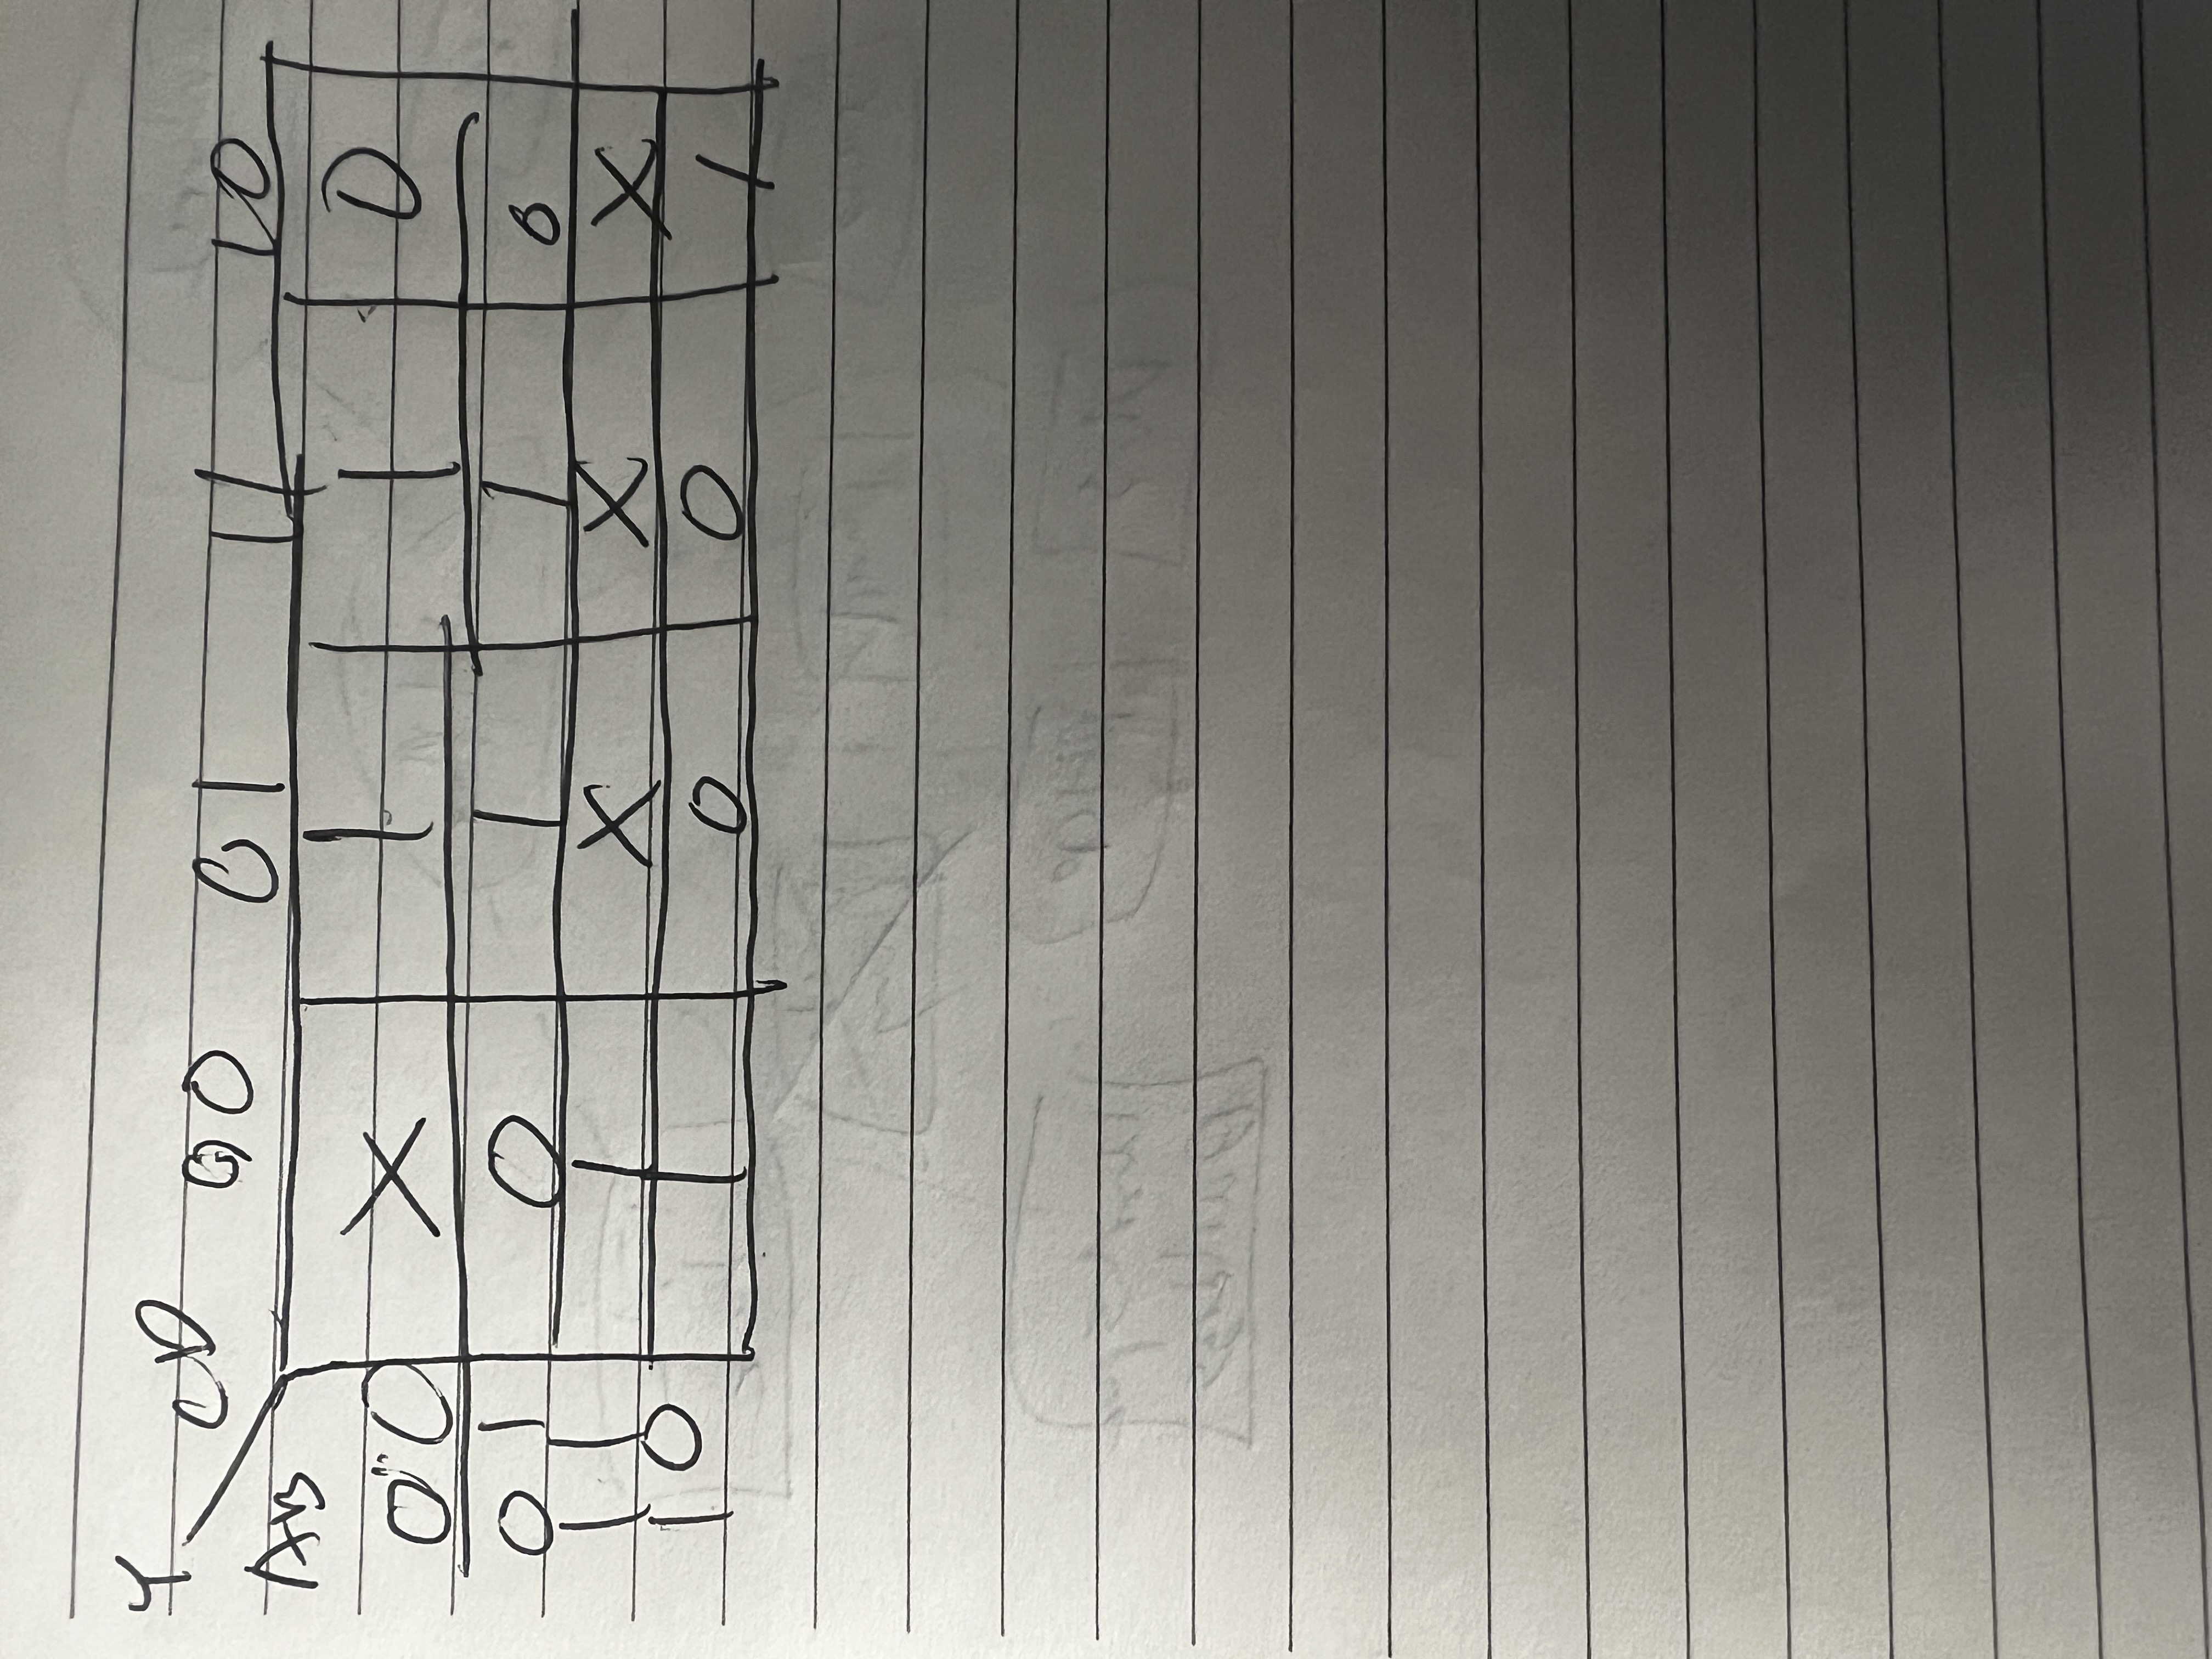 Y CD 00 01 11 10
AB
00 X 1 1 0
01 0 1 1 0
11 1 X X X
10 1 0 0 1